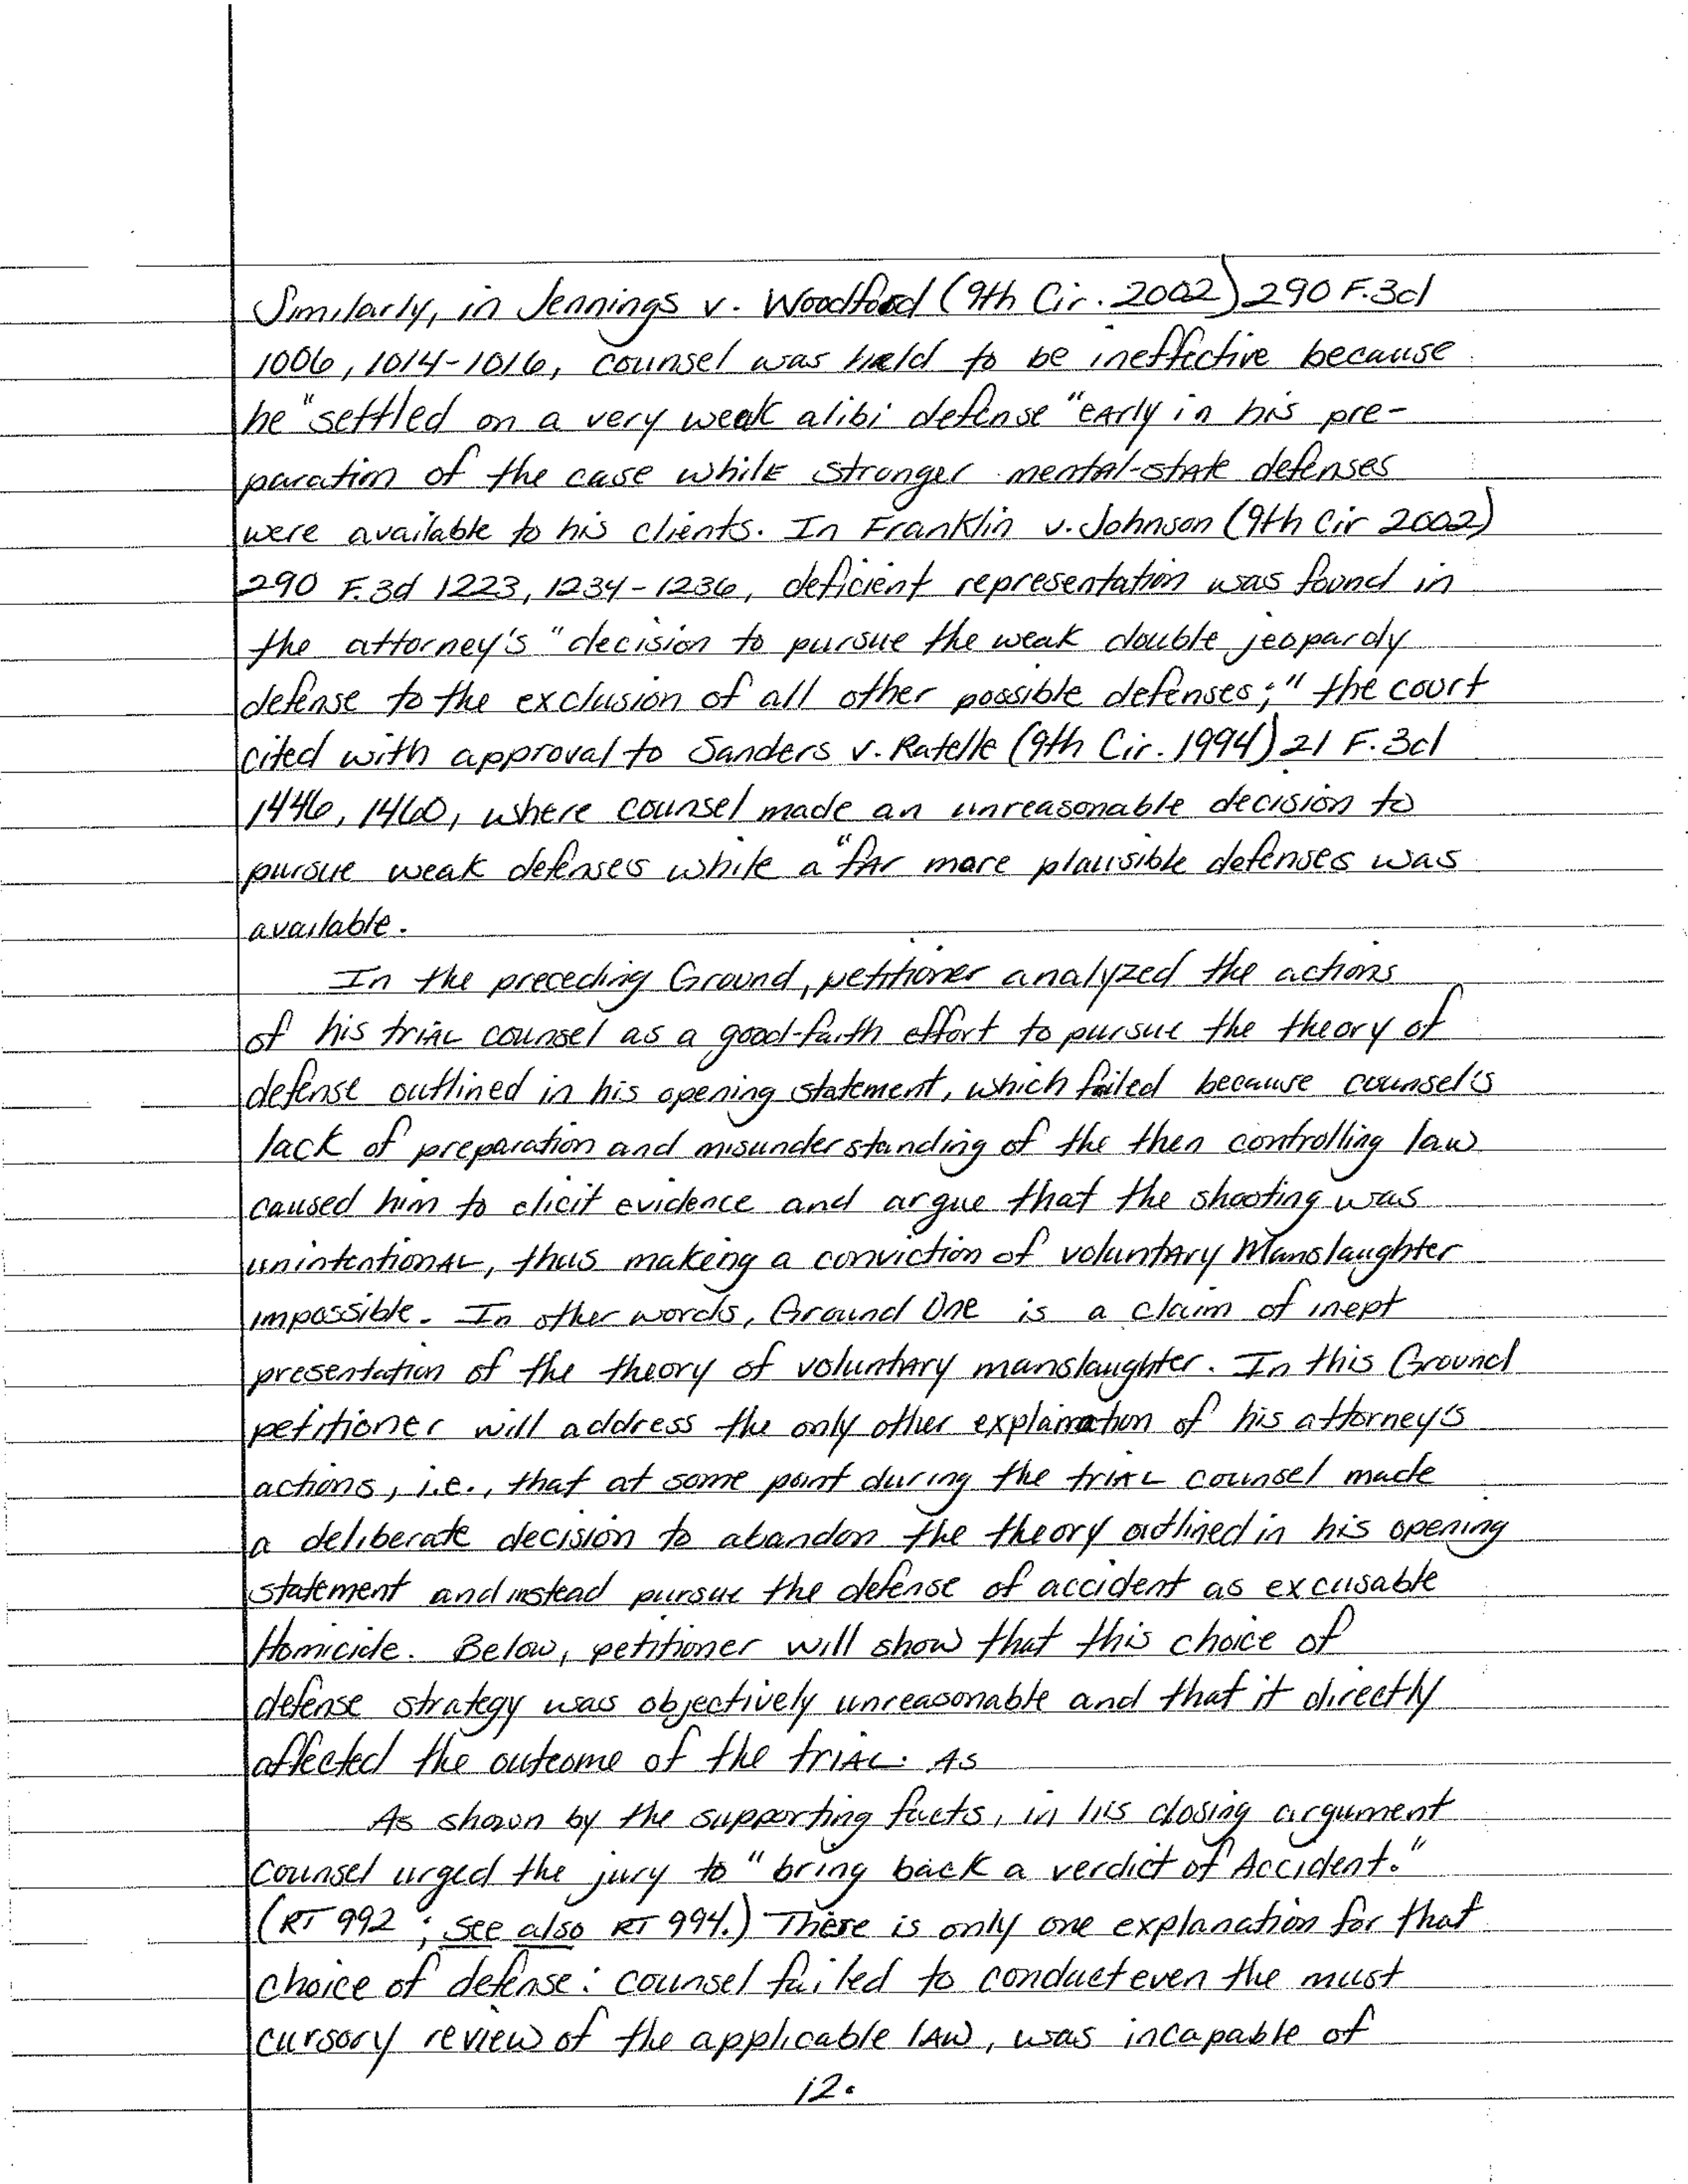 Similarly, in Jennings v. Woodford (9th Cir. 2002) 290 F.3d
1006, 1014-1016, counsel was held to be ineffective because
he "settled on a very weak alibi defense "early in his pre-
paration of the case while stronger mental-state defenses
were available to his clients. In Franklin v. Johnson (9th Cir 2002)
290 F.3d 1223, 1234-1236, deficient representation was found in
the attorney's "decision to pursue the weak double jeopardy
defense to the exclusion of all other possible defenses;" the court
cited with approval to Sanders v. Ratelle (9th Cir. 1994) 21 F.3d
1446, 1460, where counsel made an unreasonable decision to
pursue weak defenses while a "far more plausible defenses was
available.
In the preceding Ground, petitioner analyzed the actions
of his trial counsel as a good-faith effort to pursue the theory of
defense outlined in his opening statement, which failed because counsel's
lack of preparation and misunderstanding of the then controlling law
caused him to elicit evidence and argue that the shooting was
unintentional, thus making a conviction of voluntary Manslaughter
impossible. In other words, Ground One is a claim of inept
presentation of the theory of voluntary manslaughter. In this Ground
petitioner will address the only other explanation of his attorney's
actions, i.e., that at some point during the trial counsel made
a deliberate decision to abandon the theory outlined in his opening
statement and instead pursue the defense of accident as excusable
Homicide. Below, petitioner will show that this choice of
defense strategy was objectively unreasonable and that it directly
affected the outcome of the trial. As
As shown by the supporting facts, in his closing argument
counsel urged the jury to "bring back a verdict of Accident."
(RT 992; see also RT 994.) There is only one explanation for that
choice of defense: counsel failed to conduct even the must
cursory review of the applicable law, was incapable of
12.